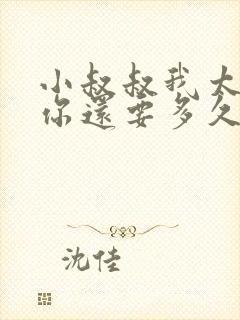 小叔叔我太
你還要多久
沈佳